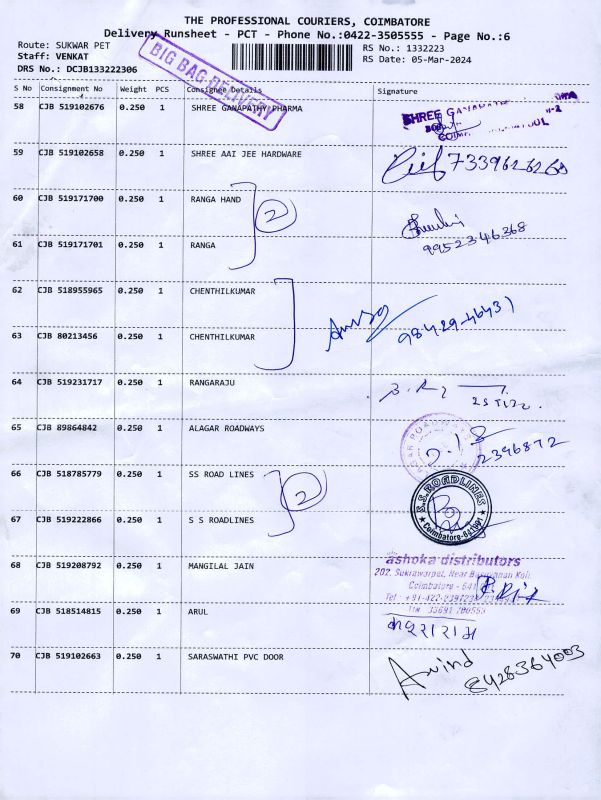 THE PROFESSIONAL COURIERS, COIMBATORE
Delivery Runsheet - PCT - Phone No.:0422-3505555 - Page No.:6
Route: SUKWAR PET
RS No.: 1332223
Staff: VENKAT
RS Date: 05-Mar-2024
DRS No.: DCJB133222306
BIG BAG DELIVERY
S No Consignment No Weight PCS Consignee Details Signature
58 CJB 519102676 0.250 1 SHREE GANAPATHY PHARMA
SHREE
59 CJB 519102658 0.250 1 SHREE AAI JEE HARDWARE
60 CJB 519171700 0.250 1 RANGA HAND
2
9952346368
61 CJB 519171701 0.250 1 RANGA
62 CJB 518955965 0.250 1 CHENTHILKUMAR
98429-46431
63 CJB 80213456 0.250 1 CHENTHILKUMAR
64 CJB 519231717 0.250 1 RANGARAJU
65 CJB 89864842 0.250 1 ALAGAR ROADWAYS
ALAGAR ROADWAYS
2396872
66 CJB 518785779 0.250 1 SS ROAD LINES
2
S.S.ROADLINES
Coimbatore-641001
67 CJB 519222866 0.250 1 S S ROADLINES
68 CJB 519208792 0.250 1 MANGILAL JAIN
ashoka distributors
202, Sukrawarpet, Near
Coimbatore - 641
69 CJB 518514815 0.250 1 ARUL
70 CJB 519102663 0.250 1 SARASWATHI PVC DOOR
Arvind
8428364003